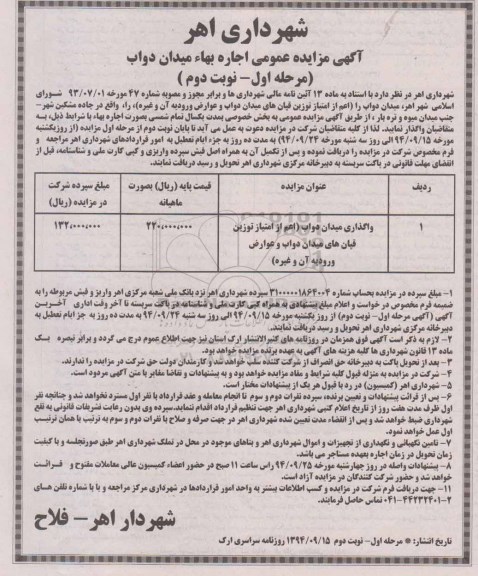 شهرداری اهر
آگهی مزایده عمومی اجاره بهاء میدان دواب
(مرحله اول- نوبت دوم )
شهرداری اهر در نظر دارد با استناد به ماده ۱۳ آئین نامه مالی شهرداری ها و برابر مجوز و مصوبه شماره ۴۷ مورخه ۹۳/۰۷/۰۱ شورای
اسلامی شهر اهر، میدان دواب را (اعم از امتیاز توزین قپان های میدان دواب و عوارض ورودیه آن و غیره)، را، واقع در جاده مشکین شهر-
جنب میدان میوه و تره بار ، از طریق آگهی مزایده عمومی به بخش خصوصی بمدت یکسال تمام شمسی بصورت اجاره بهاء با شرایط ذیل، به
متقاضیان واگذار نماید. لذا از کلیه متقاضیان شرکت در مزایده دعوت به عمل می آید تا پایان نوبت دوم از مرحله اول مزایده (از روز یکشنبه
مورخه ۹۴/۰۹/۱۵ الی روز سه شنبه مورخه ۹۴/۰۹/۲۴) به مدت ده روز به جزء ایام تعطیل به امور قراردادهای شهرداری اهر مراجعه و
فرم مخصوص شرکت در مزایده را دریافت نموده و پس از تکمیل آن به همراه اصل فیش سپرده واریزی و کپی کارت ملی و شناسنامه، قبل از
انقضای مهلت قانونی در پاکت سربسته به دبیرخانه مرکزی شهرداری اهر تحویل و رسید دریافت نمایند.
ردیف عنوان مزایده قیمت پایه (ریال) بصورت ماهیانه مبلغ سپرده شرکت در مزایده (ریال)
۱ واگذاری میدان دواب (اعم از امتیاز توزین قپان های میدان دواب و عوارض ورودیه آن و غیره) ۲۲۰،۰۰۰،۰۰۰ ۱۳۲،۰۰۰،۰۰۰
۱- مبلغ سپرده در مزایده بحساب شماره ۳۱۰۰۰۰۰۱۸۶۴۰۰۴ سپرده شهرداری اهر نزد بانک ملی شعبه مرکزی اهر واریز و فیش مربوطه را به
ضمیمه فرم مخصوص در خواست و اعلام مبلغ پیشنهادی به همراه کپی کارت ملی و شناسنامه در پاکت سربسته تا آخر وقت اداری آخرین
آگهی (آگهی مرحله اول- نوبت دوم) از روز یکشنبه مورخه ۹۴/۰۹/۱۵ الی روز سه شنبه ۹۴/۰۹/۲۴ به مدت ده روز به جز ایام تعطیل به
دبیرخانه مرکزی شهرداری اهر تحویل و رسید دریافت نمایند.
۲- لازم به ذکر است آگهی فوق همزمان در روزنامه های کثیرالانتشار ارک استان نیز جهت اطلاع عموم درج می گردد و برابر تبصره یک
ماده ۱۳ قانون شهرداری ها کلیه هزینه های آگهی به عهده برنده مزایده خواهد بود.
۳- بعد از تحویل پاکت به دبیرخانه حق انصراف از شرکت کننده سلب خواهد شد و کارمندان دولت حق شرکت در مزایده را ندارند.
۴- شرکت در مزایده به منزله قبول کلیه شرایط و مفاد مزایده خواهد بود و به پیشنهادات و تقاضا مغایر با متن آگهی مردود است.
۵- شهرداری اهر (کمیسیون) در رد یا قبول هر یک از پیشنهادات مختار است.
۶- پس از قرائت پیشنهادات و تعیین برنده، سپرده نفرات دوم و سوم تا انجام معامله و عقد قرارداد با نفر اول مسترد نخواهد شد و چنانچه نفر
اول ظرف مدت هفت روز از تاریخ اعلام کتبی شهرداری اهر جهت تنظیم قرارداد اقدام ننماید، سپرده وی بدون رعایت تشریفات قانونی به نفع
شهرداری ضبط خواهد شد و پس از انقضاء مدت تعیین شده شهرداری اهر در جهت صرفه و صلاح با نفرات دوم و سوم به ترتیب با همان ترتیب
اول عمل خواهد نمود.
۷- تامین نگهبانی و نگهداری از تجهیزات و اموال شهرداری اهر و بناهای موجود در محل در تملک شهرداری اهر طبق صورتجلسه و با کیفیت
زمان تحویل در زمان اجاره بعهده مستاجر می باشد.
۸- پیشنهادات واصله در روز چهارشنبه مورخه ۹۴/۰۹/۲۵ راس ساعت ۱۱ صبح در حضور اعضاء کمیسیون عالی معاملات مفتوح و قرائت
خواهد شد و حضور شرکت کنندگان در مزایده آزاد است.
۱۱- جهت دریافت فرم شرکت در مزایده و کسب اطلاعات بیشتر به واحد امور قراردادها در شهرداری مرکز مراجعه و یا با شماره تلفن های
۰۴۱-۴۴۲۳۲۴۰۱-۲ تماس حاصل فرمایند.
شهردار اهر- فلاح
تاریخ انتشار: * مرحله اول- نوبت دوم ۱۳۹۴/۰۹/۱۵ روزنامه سراسری ارک